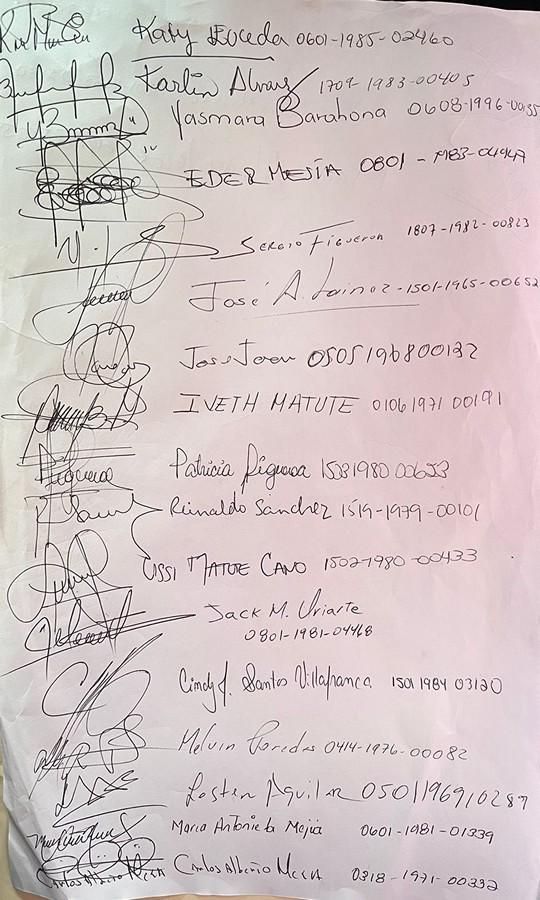 Katy Euceda 0601-1985-02460
Karlin 1709-1983-00405
Yasmara Barahona 0608-1996-00135
EDER MEJÍA 0801-1983-04947
SERGIO FIGUEROA 1807-1982-00823
José A. Lainez-1501-1965-00652
0505196800132
IVETH MATUTE 0106 1971 00191
Figueroa Patricia Figueroa 1503198000653
Reinaldo Sánchez 1519-1979-00101
MATUTE CANO 1502-1980-00433
Jack M. Uriarte
0801-1981-04468
Cindy J. Santos Villafranca 1501 1984 03120
Melvin Paredes 0414-1976-00082
Aguilar 0501196910287
Maria Antonieta Mejía 0601-1981-01339
Carlos Alberto Meza Carlos Alberto Meza 0318-1971-00332